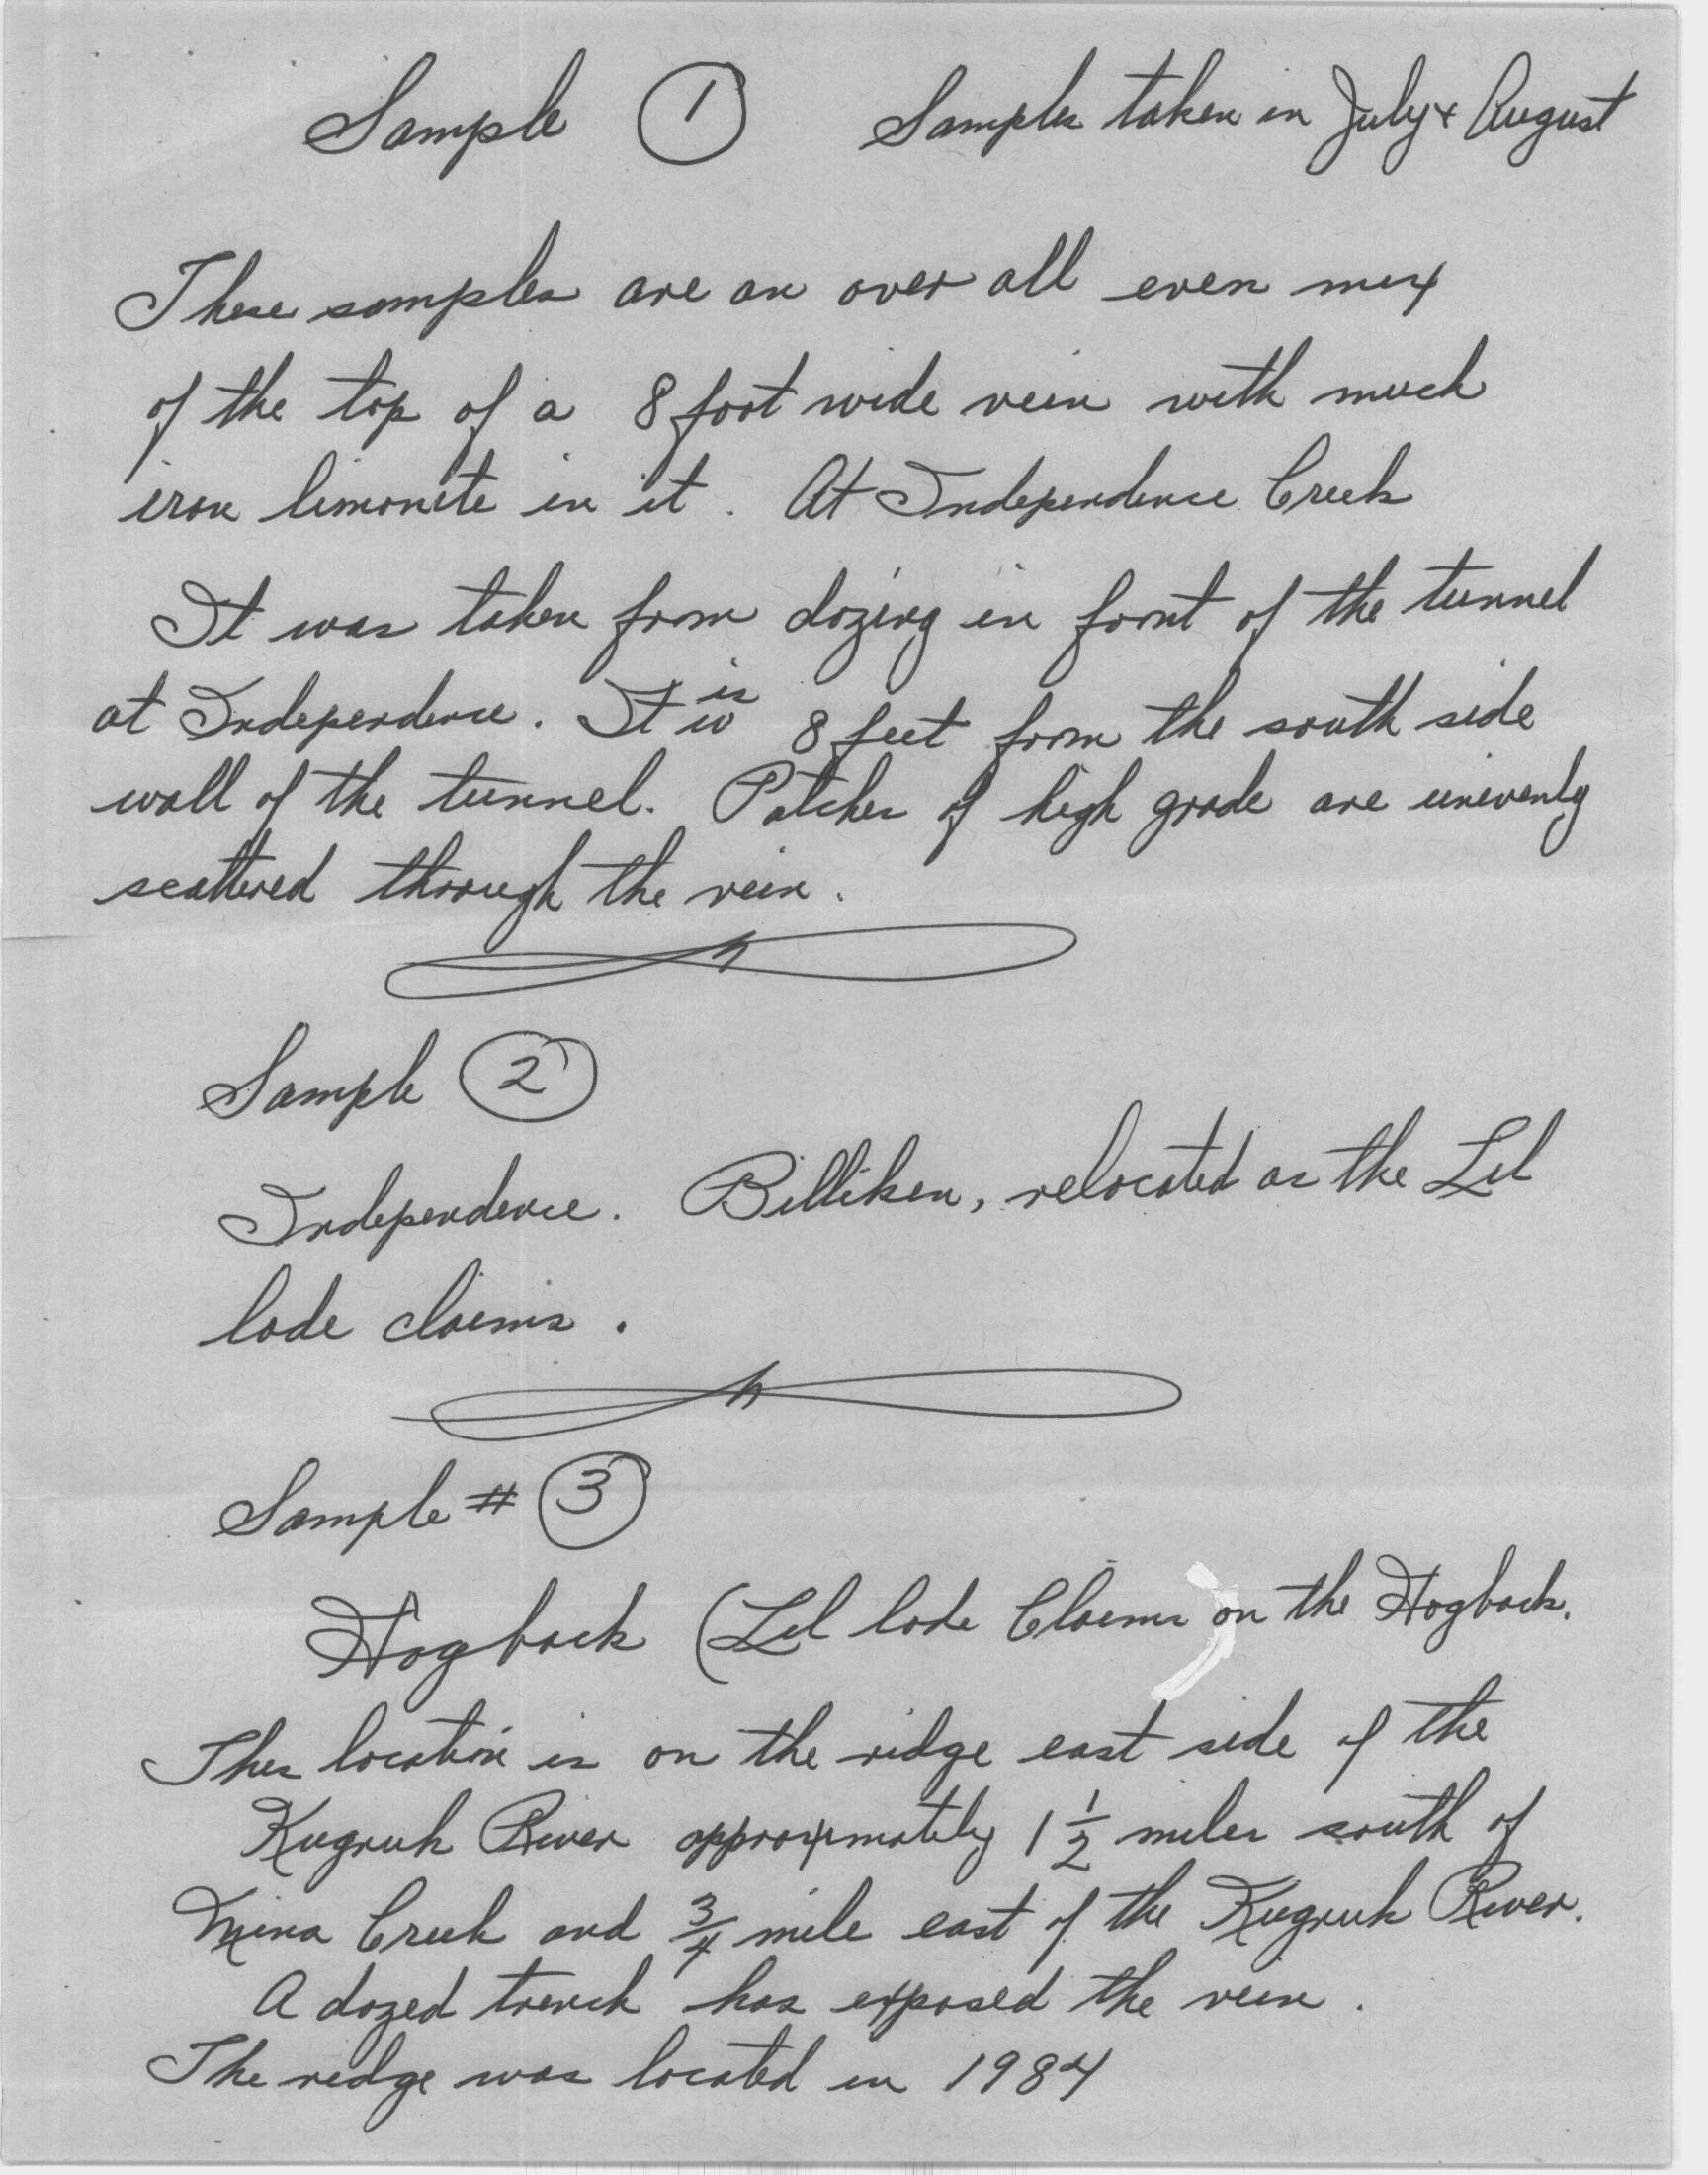 Sample 1 Samples taken in July & August
These samples are an over all even mix
of the top of a 8 foot wide vein with much
iron limonite in it. At Independence Creek
It was taken from dozing in front of the tunnel
at Independence. It is is 8 feet from the south side
wall of the tunnel. Patches of high grade are unevenly
scattered through the vein.
Sample 2
Independence. Billiken, relocated as the Lil
lode claims.
Sample # 3
Hogback (Lil lode Claims on the Hogback.
This location is on the ridge east side of the
Kugruk River approximately 1 1/2 miles south of
Mina Creek and 3/4 mile east of the Kugruk River.
A dozed trench has exposed the vein.
The ridge was located in 1984